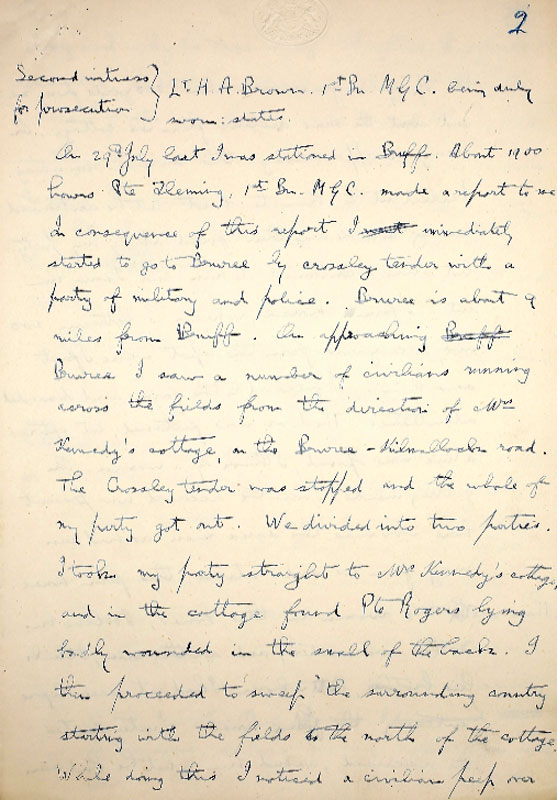 2
Second witness
for prosecution
Lt. H. A. Brown. 1st Bn. M G C. being duly
sworn: states.
On 29th July last I was stationed in Bruff. About 1900
hours Pte Fleming, 1st Bn. M G C. made a report to me
In consequence of this report I went immediately
started to go to Bruree by crossley tender with a
party of military and police. Bruree is about 9
miles from Bruff. On approaching Bruff
Bruree I saw a number of civilians running
across the fields from the direction of Mrs
Kennedy's cottage, on the Bruree - Kilmallock road.
The Crossley tender was stopped and the whole of
my party got out. We divided into two parties.
I took my party straight to Mrs Kennedy's cottage,
and in the cottage found Pte Rogers lying
badly wounded in the small of the back. I
then proceeded to "sweep" the surrounding country
starting with the fields to the north of the cottage.
While doing this I noticed a civilian peep over